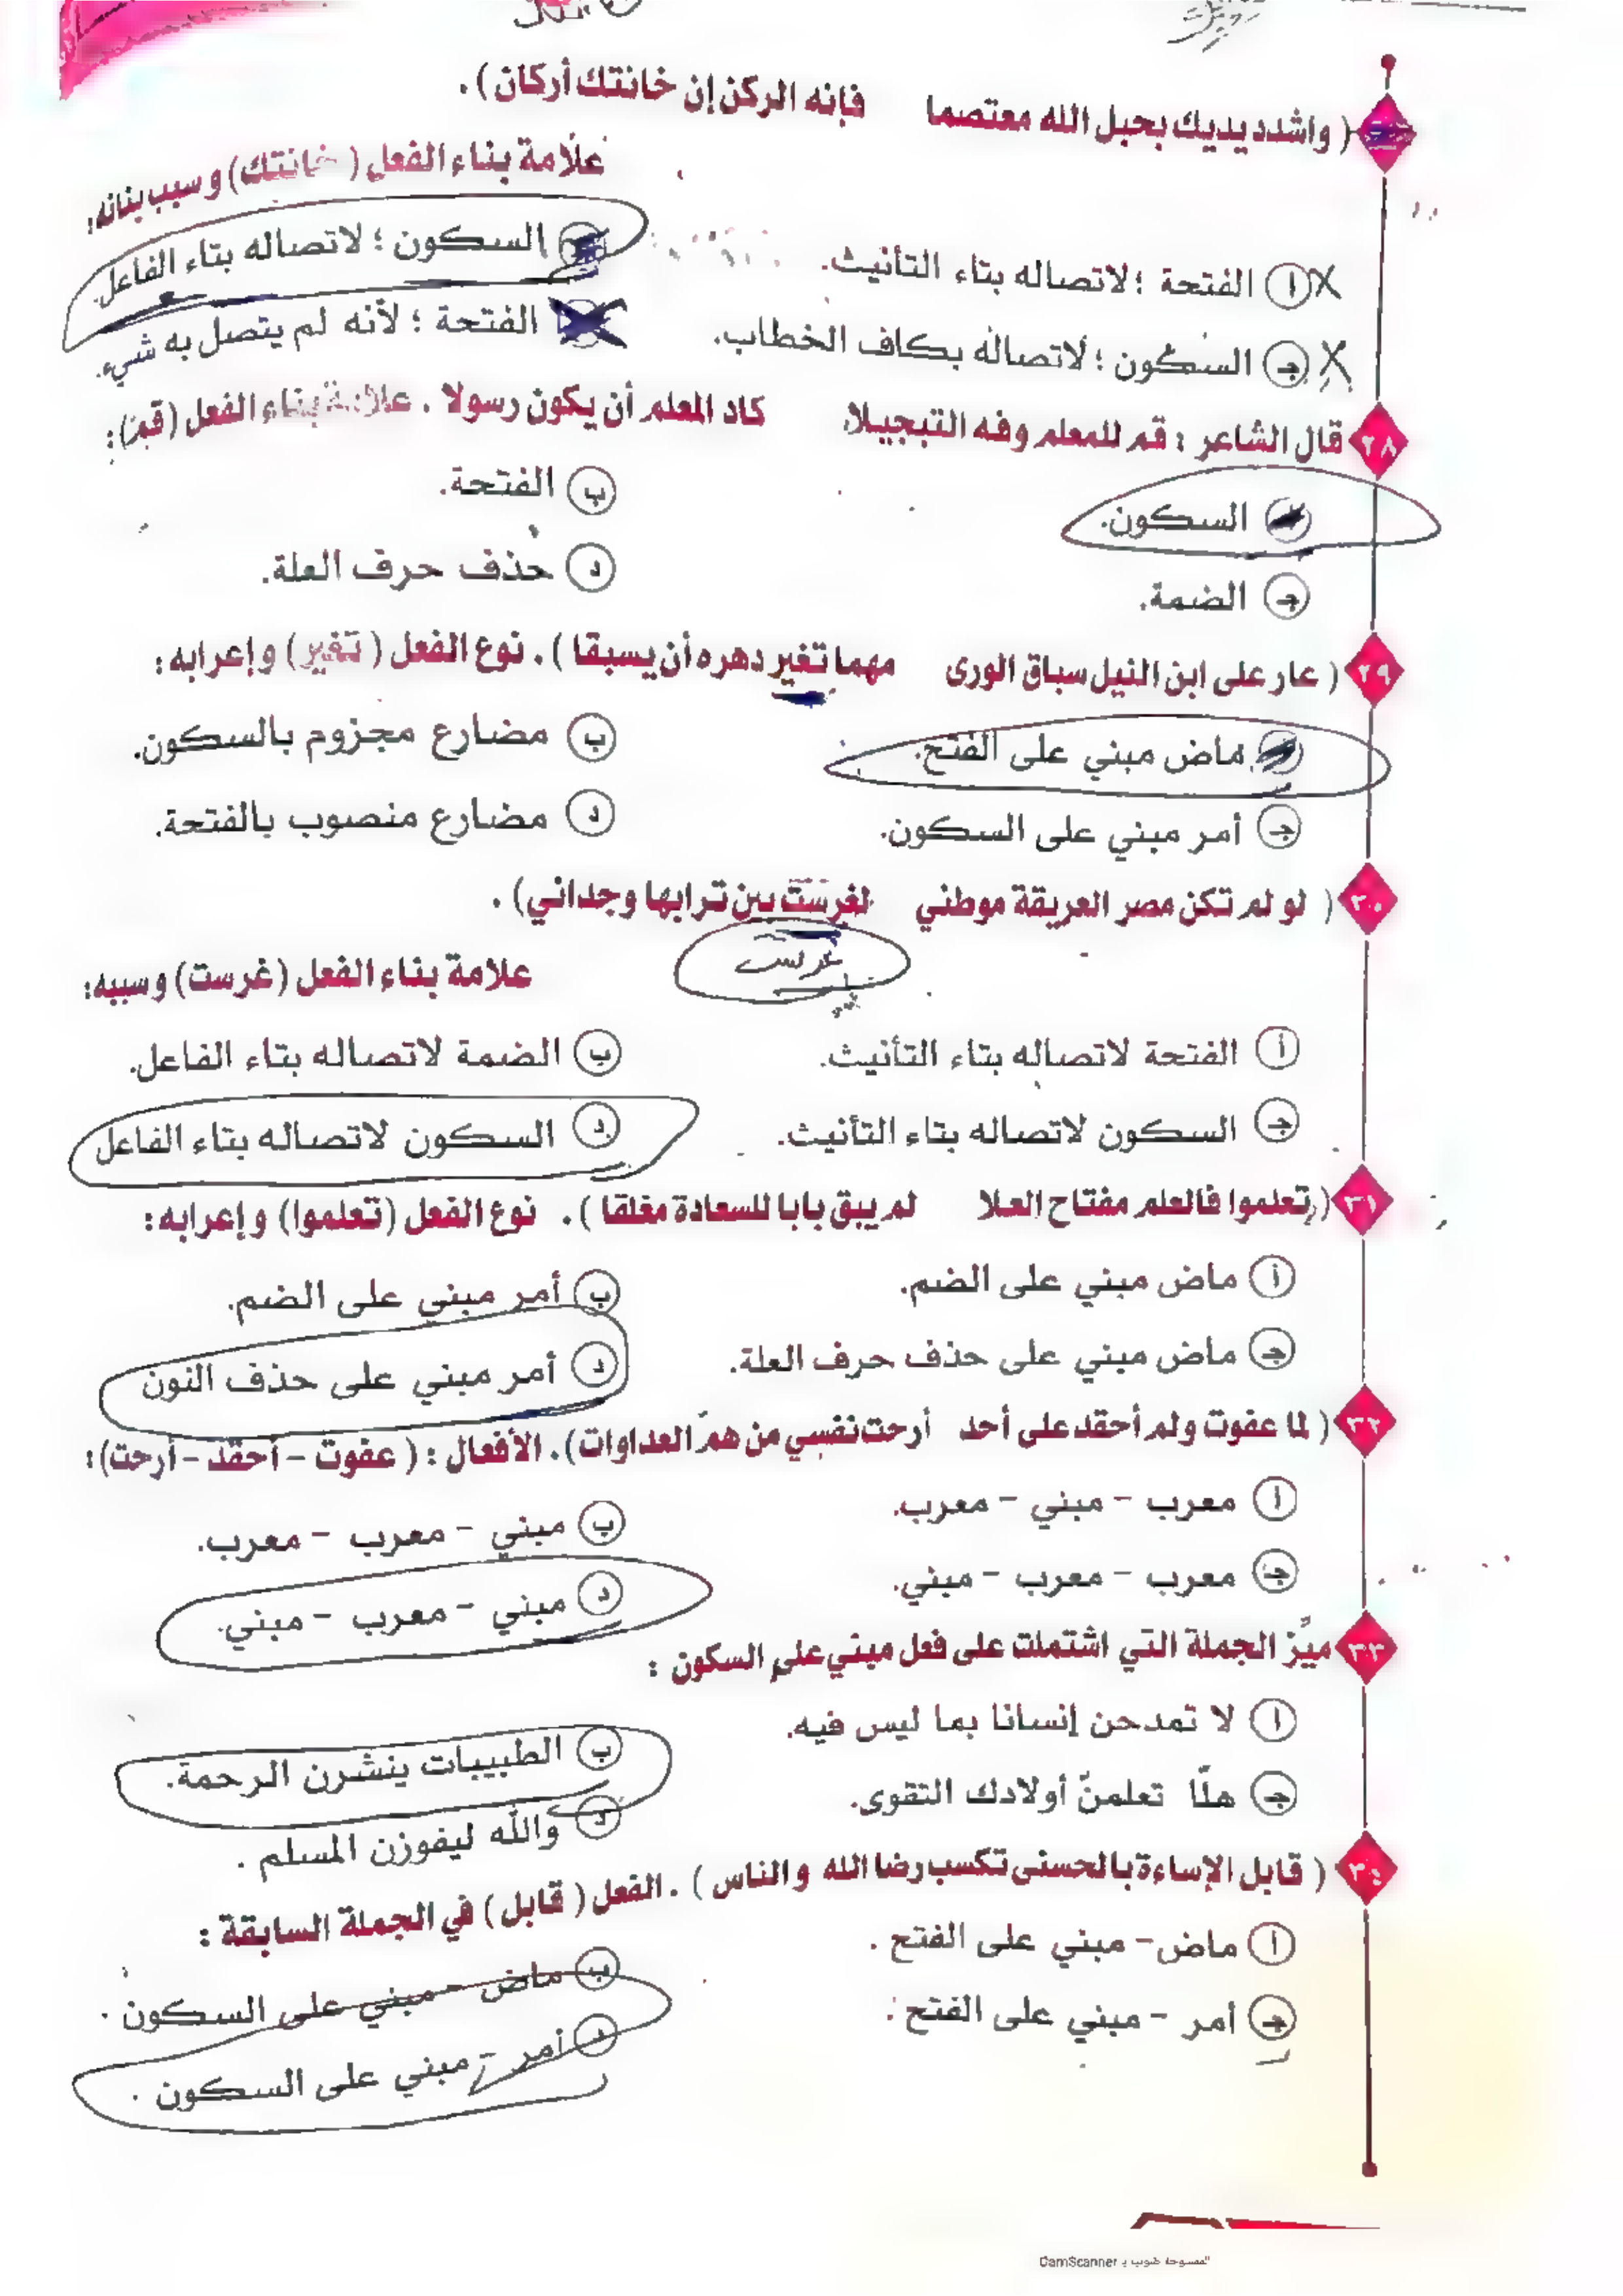 ( واشدد يديك بحبل الله معتصما فإنه الركن إن خانتك أركان ) .
علامة بناء الفعل ( خانتك) وسبب بنائه :
ا الفتحة ؛ لاتصاله بتاء التأنيث.
السكون ؛ لاتصاله بتاء الفاعل.
جـ السكون ؛ لاتصاله بكاف الخطاب.
الفتحة ؛ لأنه لم يتصل به شيء.
٢٨ قال الشاعر : قم للمعلم وفه التبجيلا كاد المعلم أن يكون رسولا . علامة بناء الفعل (قم) :
السكون.
ب الفتحة.
جـ الضمة.
د حذف حرف العلة.
٢٩ ( عار على ابن النيل سباق الورى مهما تغير دهره أن يسبقا ) . نوع الفعل ( تغير) وإعرابه :
ماض مبني على الفتح.
ب مضارع مجزوم بالسكون.
جـ أمر مبني على السكون.
د مضارع منصوب بالفتحة.
٣٠ ( لو لم تكن مصر العريقة موطني لغرست بين ترابها وجداني) .
غرست
علامة بناء الفعل (غرست) وسببه :
أ الفتحة لاتصاله بتاء التأنيث.
ب الضمة لاتصاله بتاء الفاعل.
جـ السكون لاتصاله بتاء التأنيث.
د السكون لاتصاله بتاء الفاعل
٣١ (تعلموا فالعلم مفتاح العلا لم يبق بابا للسعادة مغلقا ) . نوع الفعل (تعلموا) وإعرابه :
أ ماض مبني على الضم.
ب أمر مبني على الضم.
جـ ماض مبني على حذف حرف العلة.
د أمر مبني على حذف النون
٣٢ ( لما عفوت ولم أحقد على أحد أرحت نفسي من هم العداوات) . الأفعال : ( عفوت – أحقد – أرحت) :
ا معرب – مبني – معرب.
ب مبني – معرب – معرب.
جـ معرب – معرب – مبني.
د مبني – معرب – مبني.
٣٣ ميّز الجملة التي اشتملت على فعل مبني على السكون :
ا لا تمدحن إنسانا بما ليس فيه.
ب الطبيبات ينشرن الرحمة.
جـ هلّا تعلمنّ أولادك التقوى.
د والله ليفوزن المسلم .
٣٤ ( قابل الإساءة بالحسنى تكسب رضا الله والناس ) . الفعل ( قابل ) في الجملة السابقة :
ا ماض – مبني على الفتح .
ب ماض – مبني على السكون .
جـ أمر – مبني على الفتح .
د أمر – مبني على السكون .
الممسوحة ضوئيا بـ CamScanner